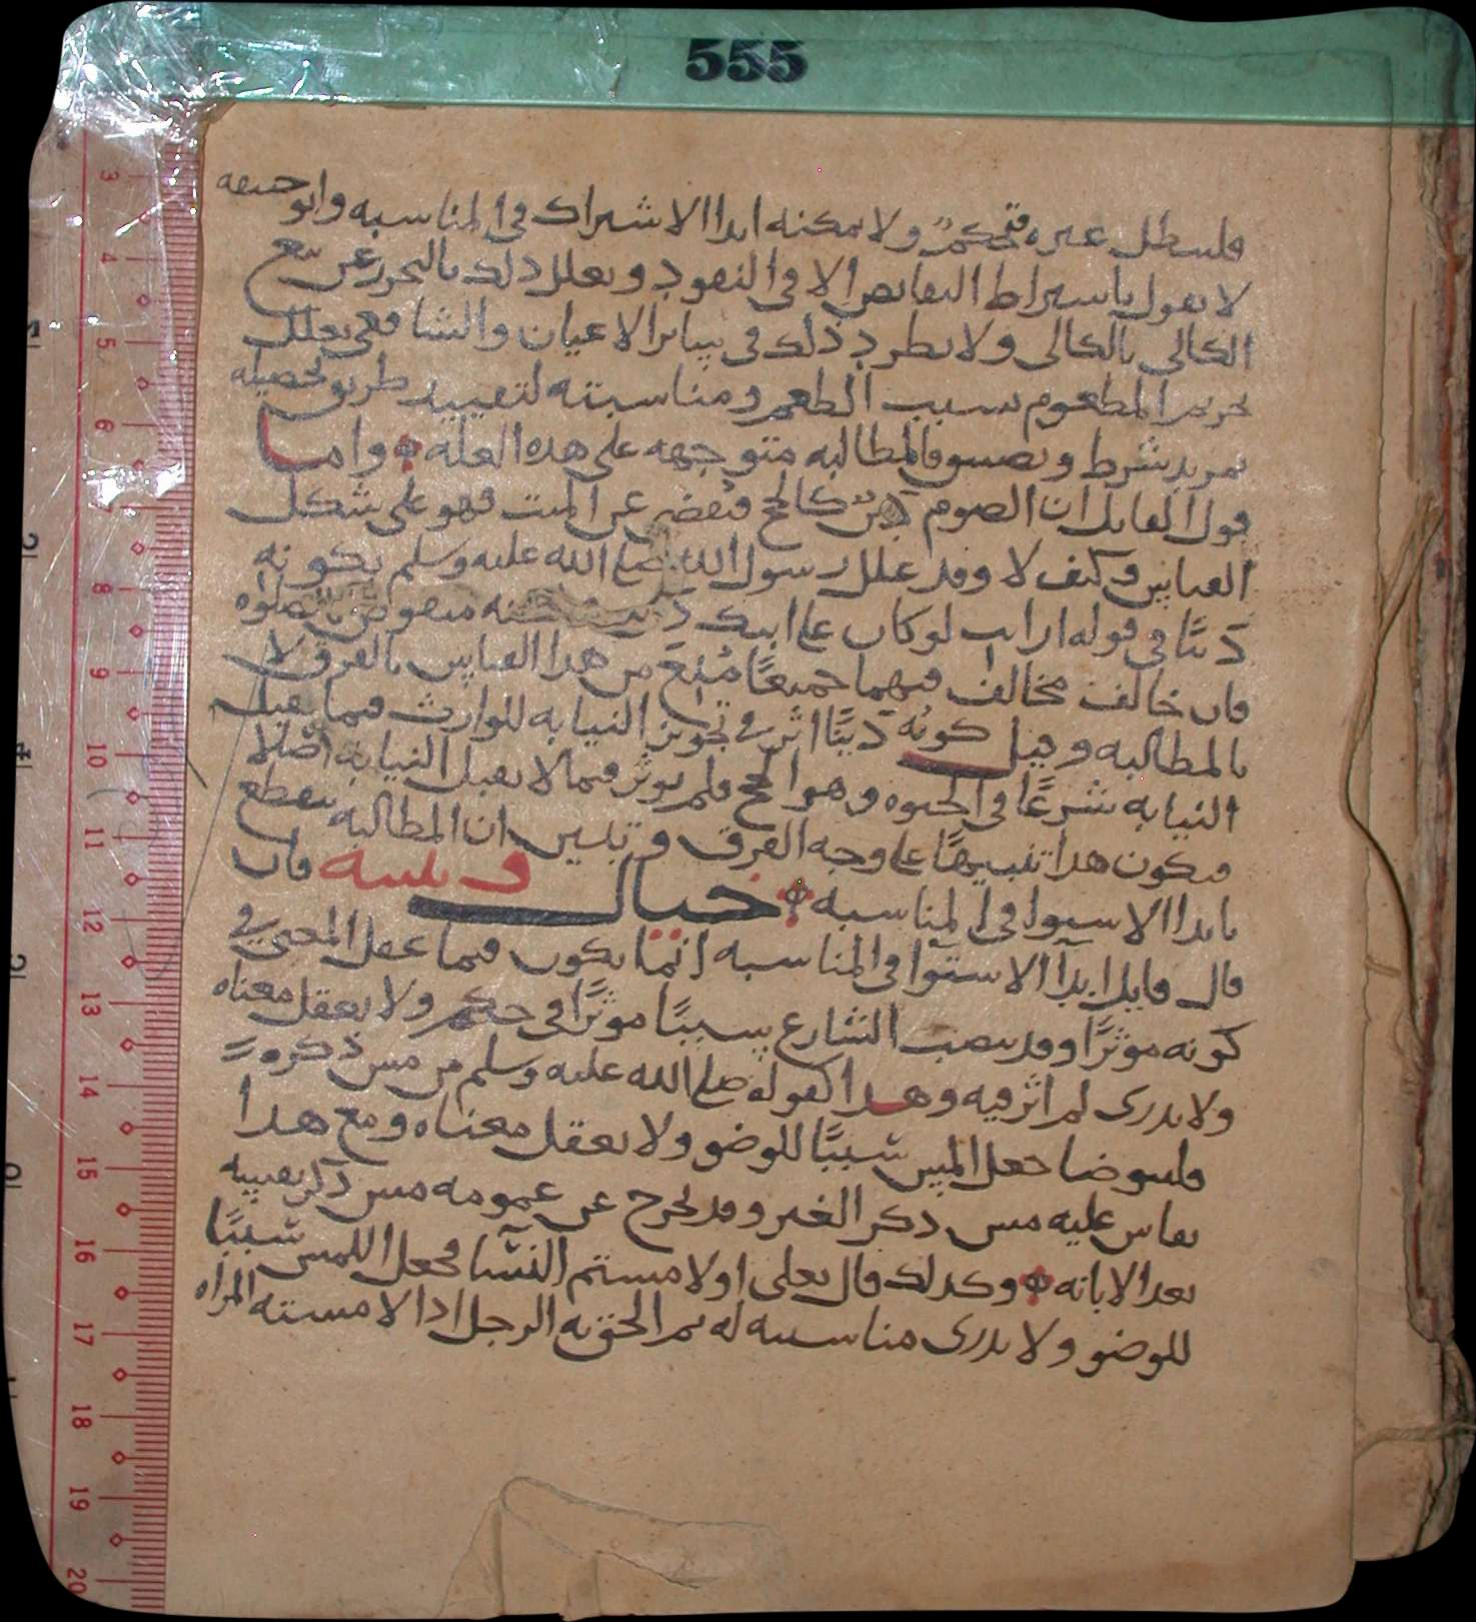 555
فليبطل غيره فتحكمٌ ولا يمكنه ابدا الاشتراك في المناسبه وابو حنيفه
لا يقول باشتراط التقابض الا في النقود ويعلل ذلك بالتحرز عن بيع
الكالي بالكالي ولا يطرد ذلك في سائر الاعيان والشافعي يعلل
تحريم المطعوم بسبب الطعم ومناسبته لتقييد طريق تحصيله
بمزيد شرط وتضييق فالمطالبه متوجهه على هذه العله واما
قول القايل ان الصوم دين كالحج فيُقضى عن الميت فهو على شكل
القياس وكيف لا وقد علل رسول الله صلى الله عليه وسلم بكونه
دَينًا في قوله ارايت لو كان على ابيك دين منقوض بالصلوه
فان خالف مخالف فيهما جميعًا مُنِعَ من هذا القياس بالفرق لا
بالمطالبه وقيل كونُه دَينًا اثر في تجويز النيابه للوارث فيما يقبل
النيابه شرعًا في الحيوه وهو الحج فلم يوثر فيما لا يقبل النيابه اصلا
فيكون هذا تنبيهًا على وجه الفرق وتبين ان المطالبه تنقطع
بابدا الاستوا في المناسبه خيال وتنبيه فان
قال قايل ابدآ الاستوآ في المناسبه انما يكون فيما عقل المعنى في
كونه موثرًا وقد ينصب الشارع سببًا موثرًا في حكم ولا يعقل معناه
ولا يدرى لم اثر فيه وهذا كقوله صلى الله عليه وسلم من مس ذكره
فليتوضا جعل المس سببًا للوضو ولا يعقل معناه ومع هذا
يقاس عليه مس ذكر الغير وقد يخرج عن عمومه مس ذكر نفسه
بعد الابانه وكذلك قال تعلى او لامستم النسآ فجعل اللمس سببًا
للوضو ولا يدرى مناسبته له ثم الحق به الرجل اذا لامسته المراه
3
4
5
6
7
8
9
10
11
12
13
14
15
16
17
18
19
20